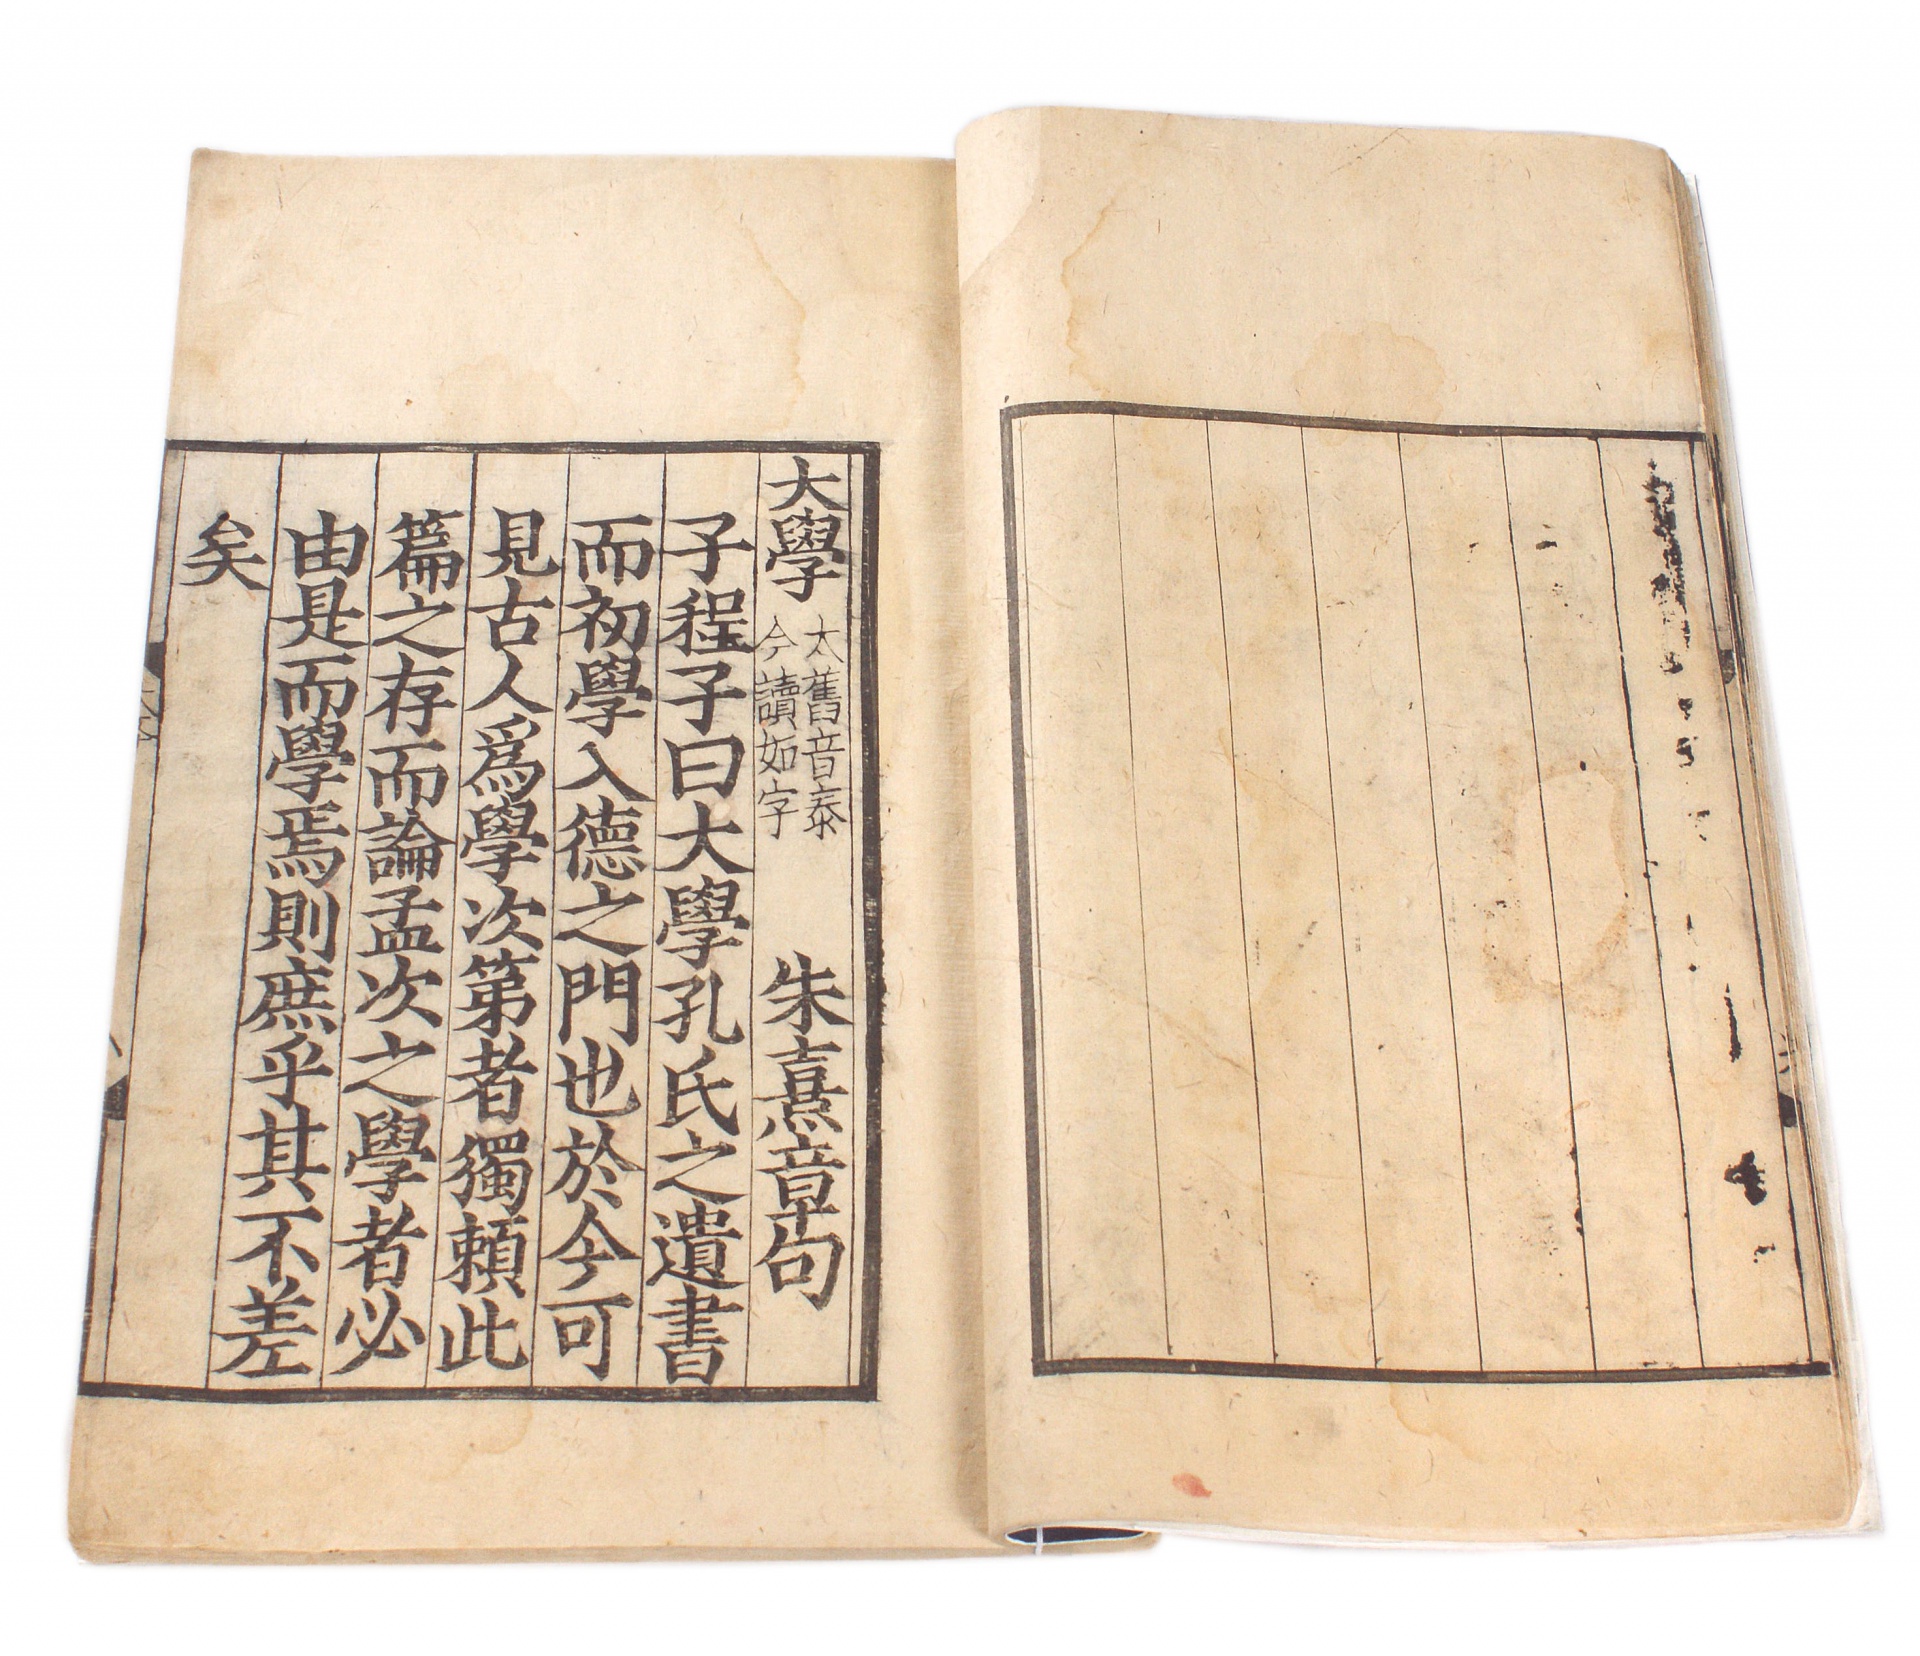 大學 大舊音泰 今讀如字 朱熹章句
子程子曰大學孔氏之遺書
而初學入德之門也於今可
見古人爲學次第者獨賴此
篇之存而論孟次之學者必
由是而學焉則庶乎其不差
矣